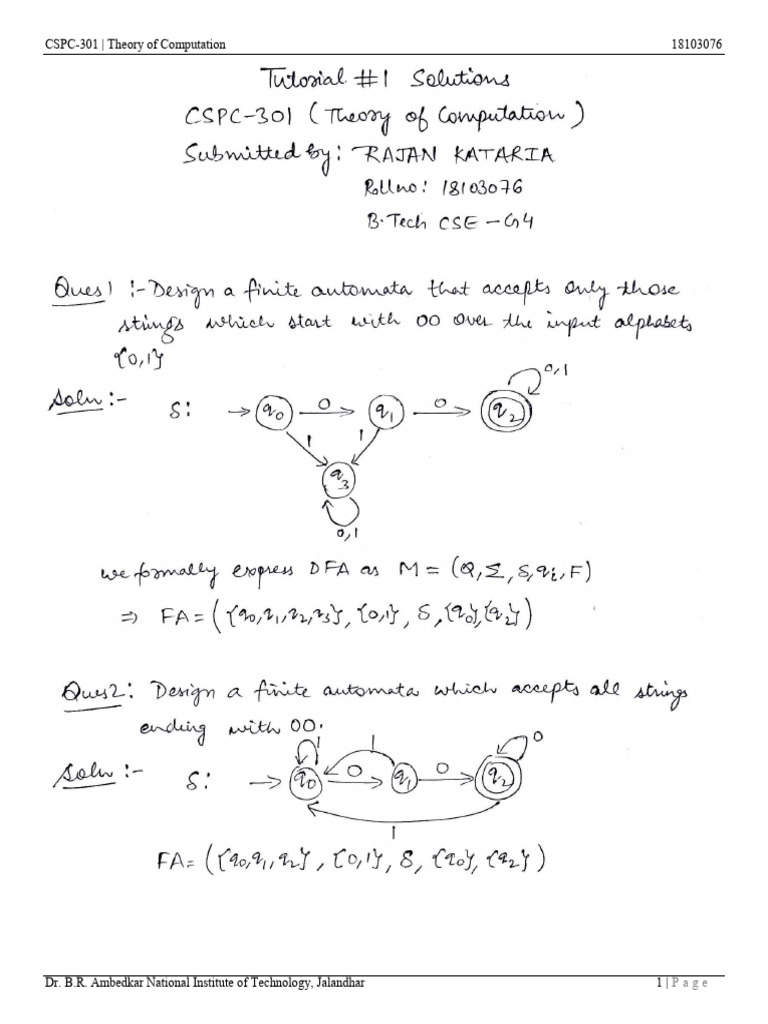 CSPC-301 | Theory of Computation 18103076
Tutorial #1 Solutions
CSPC-301 (Theory of Computation)
Submitted by: RAJAN KATARIA
Roll no: 18103076
B.Tech CSE-G4
Ques1 :- Design a finite automata that accepts only those
strings which start with 00 over the input alphabets
{0,1}
Soln :- δ: q0 0 q1 0 q2 0,1
1 1
q3
0,1
we formally express DFA as M = (Q, Σ, δ, qi, F)
⇒ FA = ({q0,q1,q2,q3}, {0,1}, δ, {q0}, {q2})
Ques2: Design a finite automata which accepts all strings
ending with 00.
1 1 0
Soln :- δ: q0 0 q1 0 q2
1
FA = ({q0,q1,q2}, {0,1}, δ, {q0}, {q2})
Dr. B.R. Ambedkar National Institute of Technology, Jalandhar 1 | Page